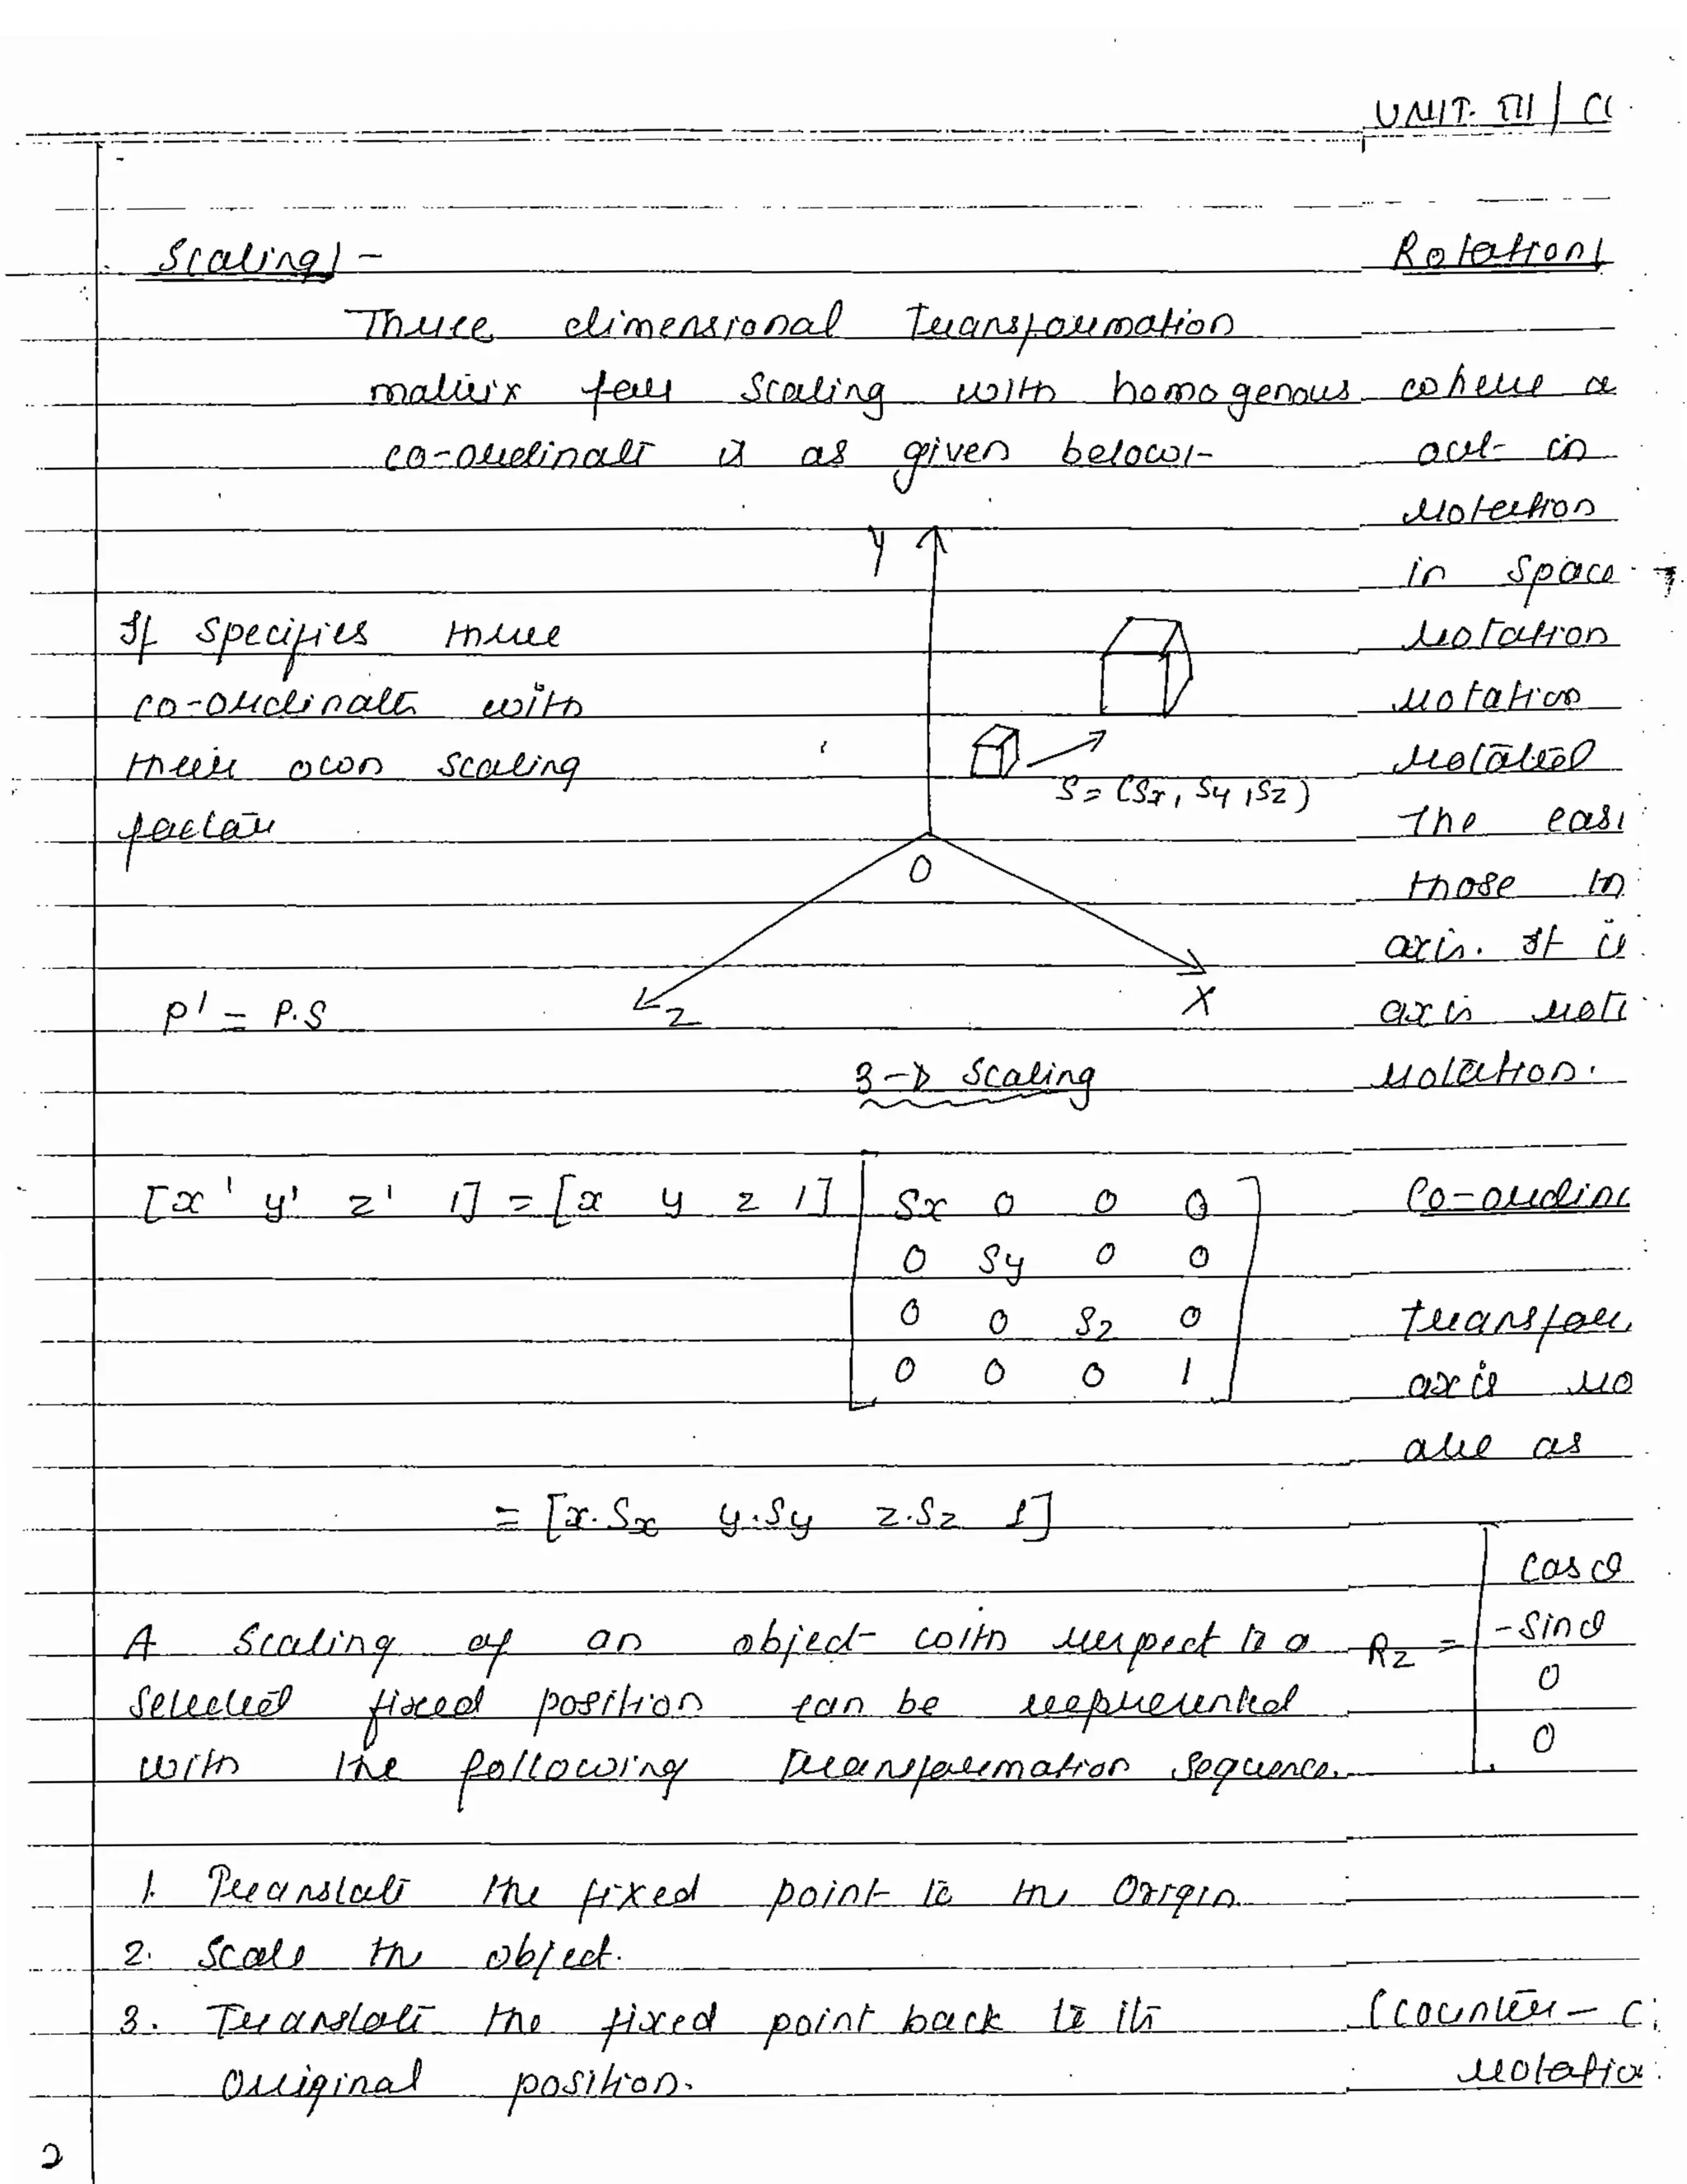 UNIT. III / C
Scaling :-
Three dimensional Transformation
matrix for Scaling with homogenous
co-ordinate is as given below:-
Y
It specifies three
co-ordinate with
their own scaling
factor
S = (Sx, Sy, Sz)
O
P' = P.S
Z
X
3-D Scaling
[x' y' z' 1] = [x y z 1] [Sx 0 0 0
0 Sy 0 0
0 0 Sz 0
0 0 0 1]
= [x.Sx y.Sy z.Sz 1]
A scaling of an object with respect to a
selected fixed position can be represented
with the following transformation sequence.
1. Translate the fixed point to the Origin.
2. Scale the object.
3. Translate the fixed point back to its
original position.
2
Rotation
where a
act in
rotation
in space
rotation
rotation
rotated
The easi
those
axis. It is
axis rot
rotation.
Co-ordina
transfor
axis ro
are as
Rz = [Cosθ
-Sinθ
0
0
(counter - C
rotatio